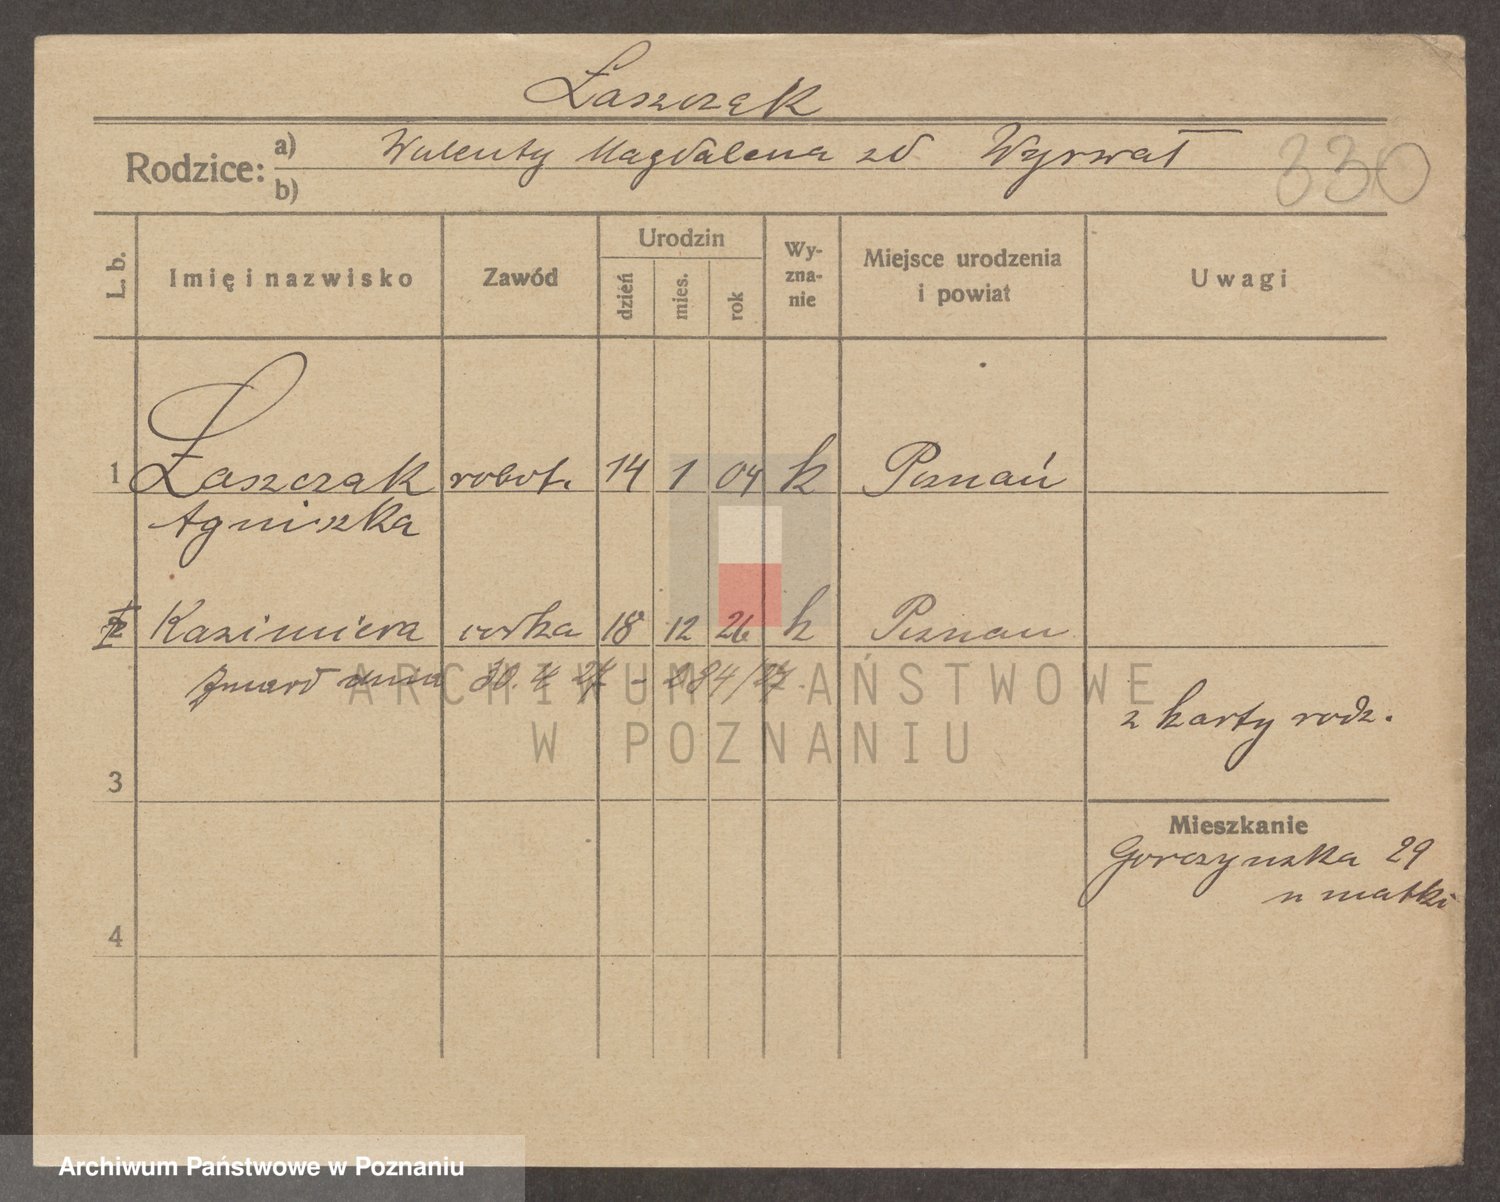 Łaszczak
Rodzice:
a) Walenty Magdalena zd Wyrwał
b)
330
L. b.
Imię i nazwisko
Zawód
Urodzin
dzień
mies.
rok
Wy-
zna-
nie
Miejsce urodzenia
i powiat
Uwagi
1 Łaszczak robot. 14 1 04 k Poznań
Agniszka
2 Kazimiera corka 18 12 26 k Poznan
zmarł dnia 30. 27 - 27
z karty rodz.
3
Mieszkanie
Gorczynska 29
u matki
4
ARCHIWUM PAŃSTWOWE
W POZNANIU
Archiwum Państwowe w Poznaniu